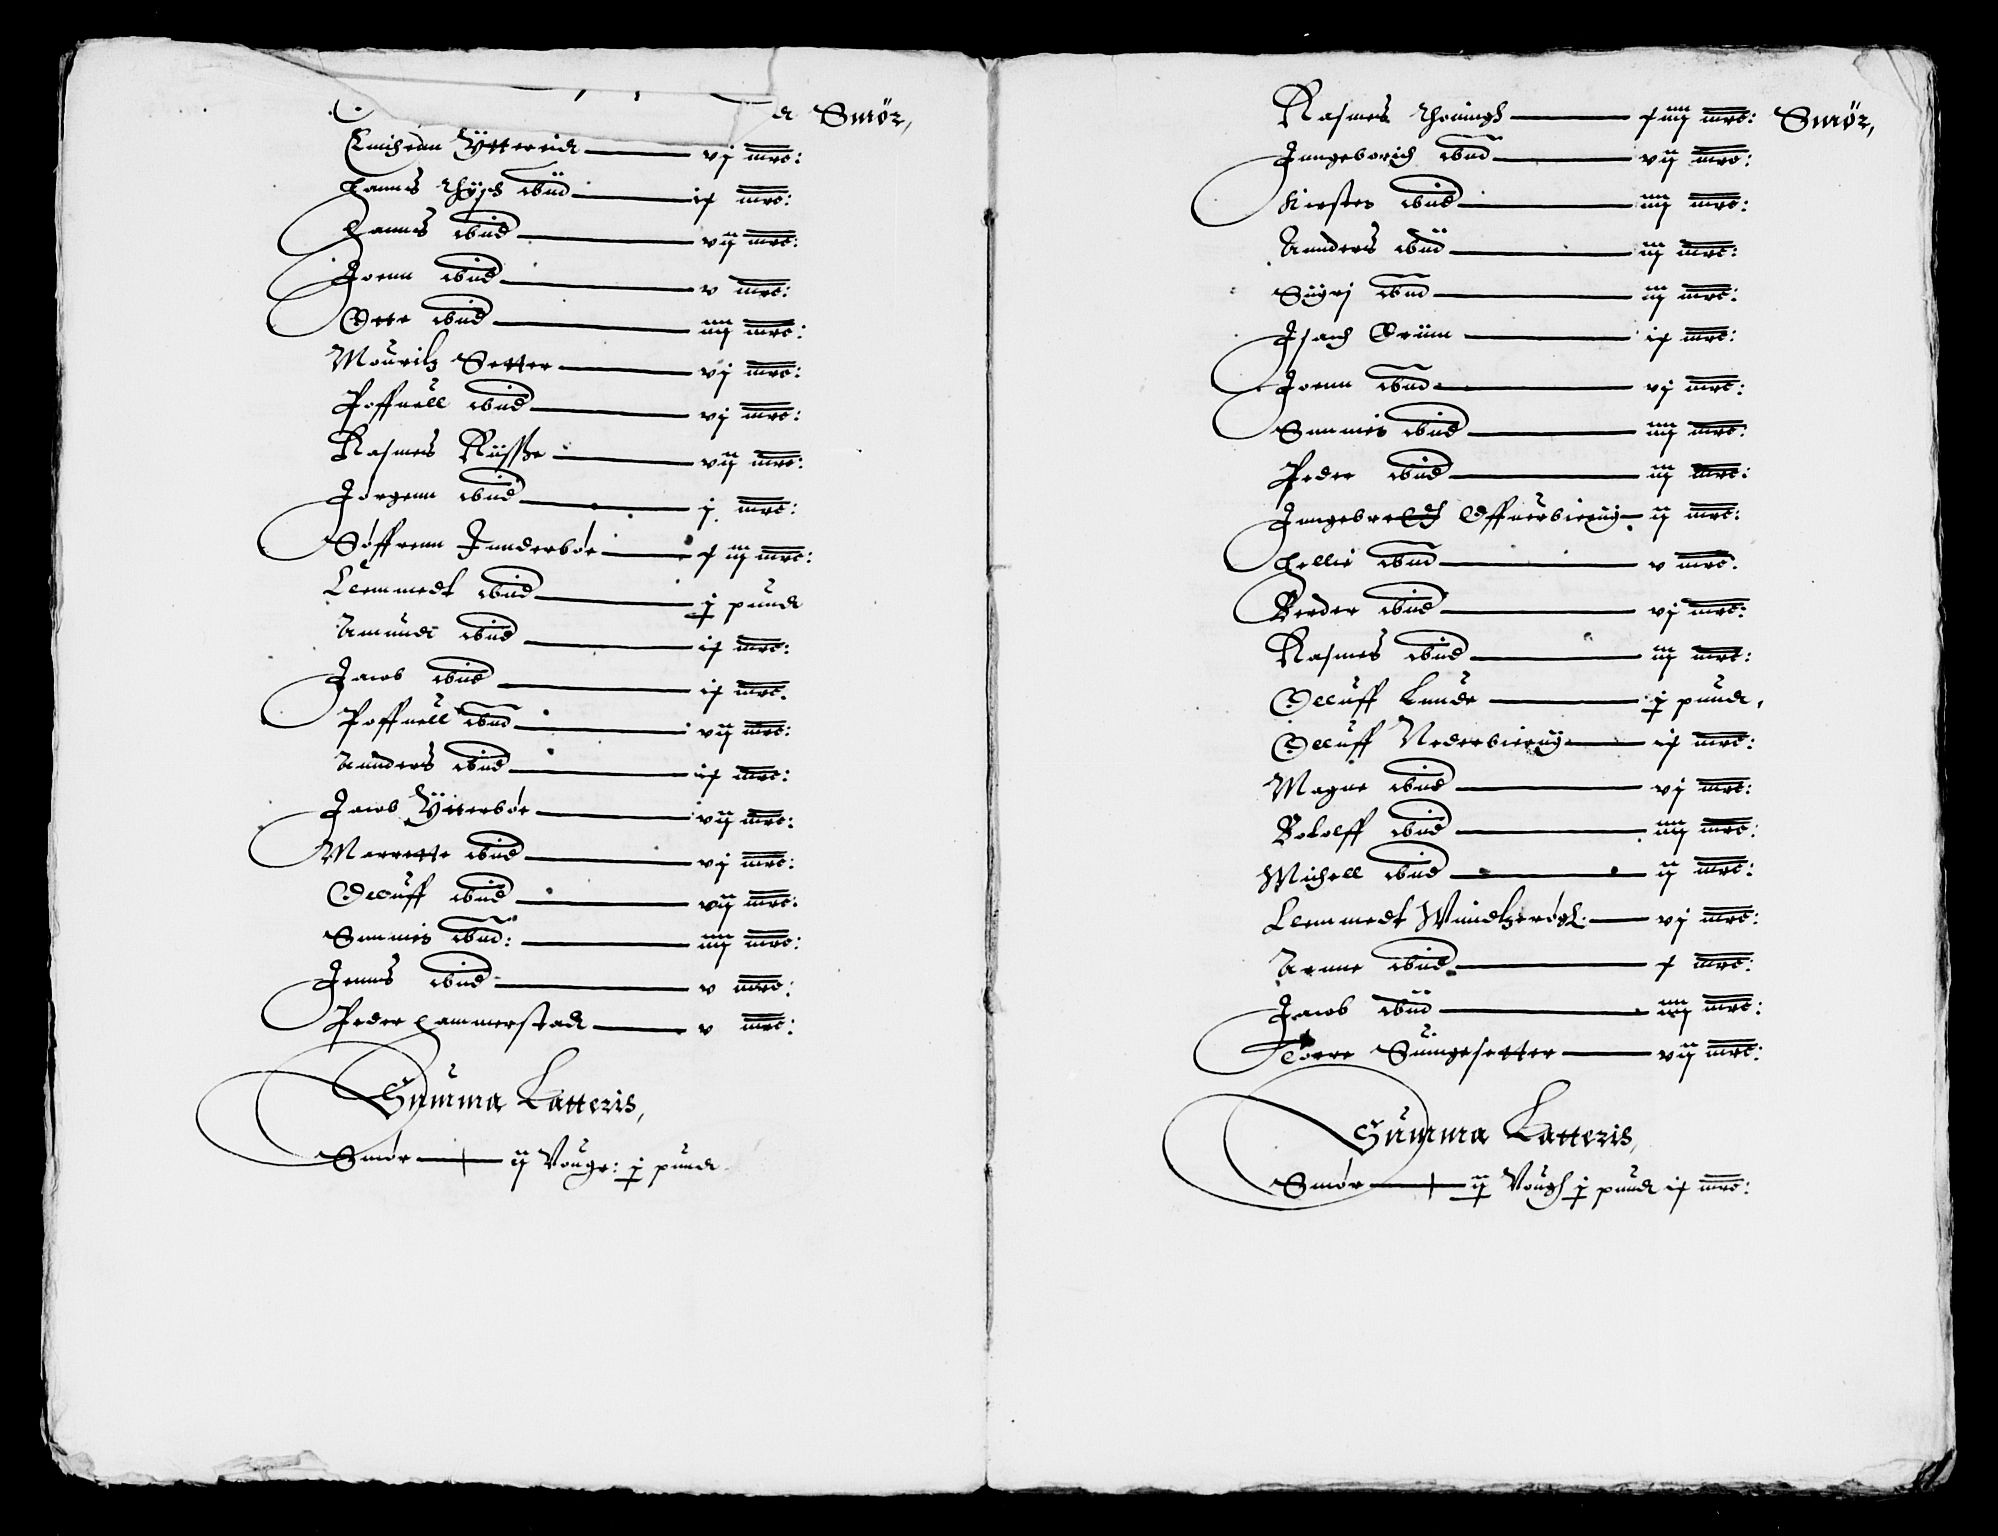 d Smør,
Yttereid vj mrc:
Hannis ibid ix mrc:
Hannis ibid vij mrc:
Joenn ibid v mrc:
Otte ibid iiij mrc:
Mouritz Setter vj mrc:
Poffuell ibid vj mrc:
Rasmus Russße vij mrc:
Jørgenn ibid j mrc:
Søffrenn Inderbøe x iij mrc:
Clemmedt ibid j pund
Amund ibid ix mrc:
Jacob ibid ix mrc:
Poffuell ibid vij mrc:
Annders ibid ix mrc:
Jacob Ytterbøe vij mrc:
Marrette ibid vj mrc:
Oluff ibid vij mrc:
Sunnius ibid: iiij mrc:
Jenns ibid v mrc:
Peder Hammerstad v mrc:
Summa Latteris,
Smør ij Vouge: j pund
Rasmus Honingh x iiij mrc: Smør,
Inngeborich ibid vij mrc:
Kirsten ibid iiij mrc:
Annders ibid iij mrc:
Sigrj ibid iij mrc:
Isach Grün ix mrc:
Joenn ibid vj mrc:
Sunnius ibid iiij mrc:
Peder ibid iij mrc:
Inngebredt Offuerbierig ij mrc:
Hellie ibid v mrc.
Reder ibid vj mrc:
Rasmus ibid iij mrc:
Oluff Lunde j pund,
Oluff Nederbierig ix mrc:
Magne ibid vj mrc:
Botolff ibid iiij mrc:
Michell ibid ij mrc:
Clemmedt vj mrc:
Arnne ibid x mrc:
Jacob ibid iiij mrc:
Torre Sungesetter vij mrc:
Summa Latteris,
Smør ij Vough j pund ix mrc: